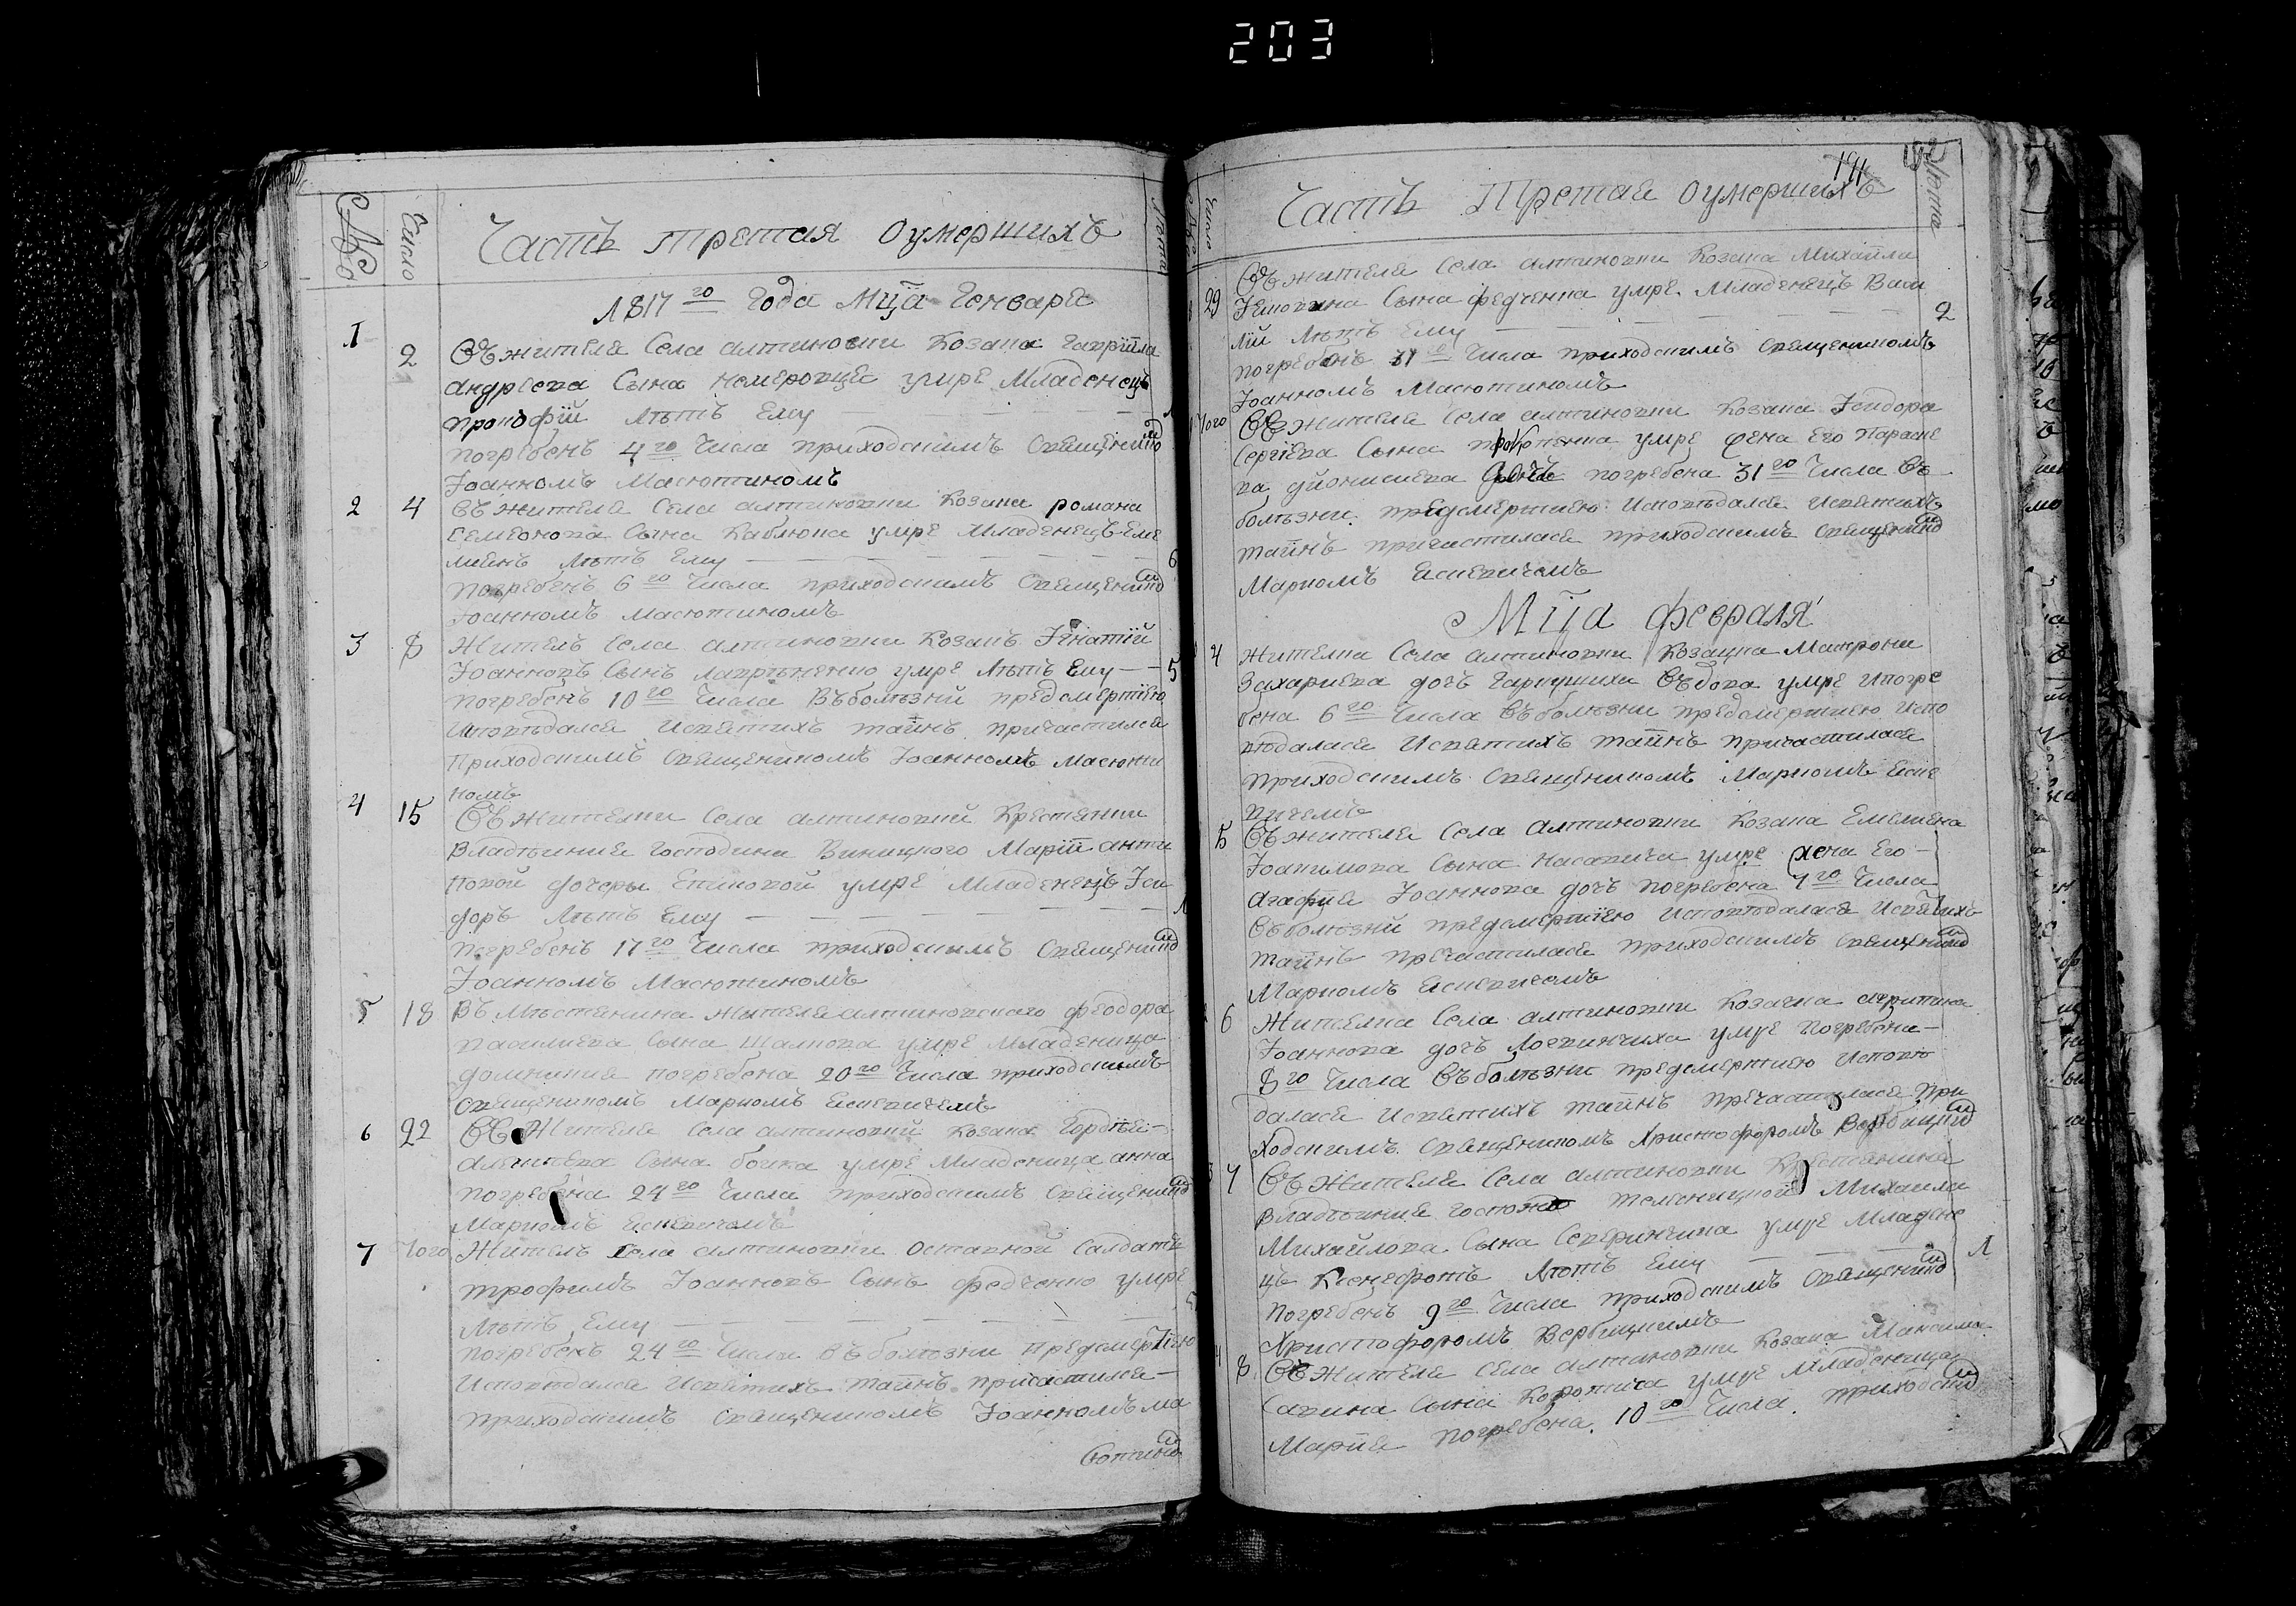 203
№
Число
Часть третая оумершихъ
Лѣта
1817го Года Мца Генваря
1
2
Въ жителя Села алтиновки Козака Гавріила
андреева Сына немеровце умре Младенецъ
прокофій Лѣтъ Ему — 1
погребенъ 4го Числа приходскимъ Священико
Іоанномъ Масютиномъ
2
4
Въ жителя Села алтиновки Козака романа
Семеонова Сына Каблюка умре Младенецъ Еме
лиянъ Лѣтъ Ему — 6
Погребенъ 6го Числа приходскимъ Священико
Іоанномъ Масютиномъ
3
8
Житель Села алтиновки Козакъ Ігнатій
Іоанновъ Сынъ лаврѣненко умре Лѣтъ Ему — 5
погребенъ 10го Числа Въ болѣзнй предсмертїею
Исповѣдался Исвятихъ таинъ причастился
Приходскимъ Священикомъ Іоанномъ Масюти
номъ
4
15
Въ жителки Села алтиновкй Крестянки
Владѣния Господина Виницкого Маріи анти
повой дочеры Епиковой умре Младенецъ Іси
доръ Лѣтъ Ему — 1
погребенъ 17го Числа приходскимъ Священико
Іоанномъ Масютиномъ
5
18
Въ Мѣстянина жителя алтиновского феодора
василиева Сына Шалпова умре Младеница
домникия погребена 20го Числа приходскимъ
Священикомъ Маркомъ Ясневичемъ
6
22
Въ Жителя Села алтиновкй козака Гордѣя
алексѣева Сына бойка умре Младеница анна
погребена 24го Числа приходскимъ Священико
Маркомъ Ясневичемъ
7
Того
Житель Села алтиновки Оставной Салдатъ
трофимъ Іоанновъ Сынъ федченко умре
Лѣтъ Ему —
погребенъ 24го Числа Въ болѣзни Предсмертїею
Исповѣдался Исвятихъ таинъ причастился
приходскимъ Священикомъ Іоанномъ Ма
Сютино
Число
Часть Третая оумершихъ
Лѣта
29
Въ жителя Села алтиновки Козака Михайла
Сына федченка умре Младенецъ Васи
лій Лѣтъ Ему — 2
погребенъ 31го Числа приходскимъ Священикомъ
Іоанномъ Масютиномъ
Того
Въ Жителя Села алтиновки Козака Ісидора
Сергіева Сына умре жена Его Параске
ва дйонисиева дочь погребена 31го Числа Въ
болѣзни предсмертнею Исповѣдалася Исвятихъ
таинъ причастилася приходскимъ Священико
Маркомъ Ясневичемъ
Мца февраля
4
Жителка Села алтиновки Козачка Матрони
Захариева дочь Гаркушиха Въдова умре ипогре
бена 6го Числа Въ болѣзни предсмертнею испо
вѣдалася Исвятихъ таинъ причастилася
приходскимъ Священикомъ Маркомъ Ясне
вичемъ
5
Въ жителя Села Алтиновки Козака Емелияна
Іоакимова Сына Насавича умре жена Его
Агафия Іоаннова дочь погребена 7го Числа
Въ болѣзнй предсмертїею исповѣдалася Исвятихъ
таинъ причастилася приходскимъ Священико
Маркомъ Ясневичемъ
6
Жителка Села алтиновки Козачка
Іоаннова дочь Логвинчиха умре погребена
8го Числа Въ болѣзни предсмертнею Исповѣ
далася Исвятихъ таинъ причастилася при
ходскимъ Священикомъ Христофоромъ Вербицки
7
Въ Жителя Села алтиновки Крестянина
Владѣния госпожи Михаила
Михайлова Сына Северинчика умре Младене
цъ Ксенефонтъ Лѣтъ Ему — 1
погребенъ 9го Числа приходскимъ Священико
Христофоромъ Вербицкимъ
8
Въ Жителя Села алтиновки Козака Максима
Савина Сына умре Младеница
Мария погребена 10го Числа приходски